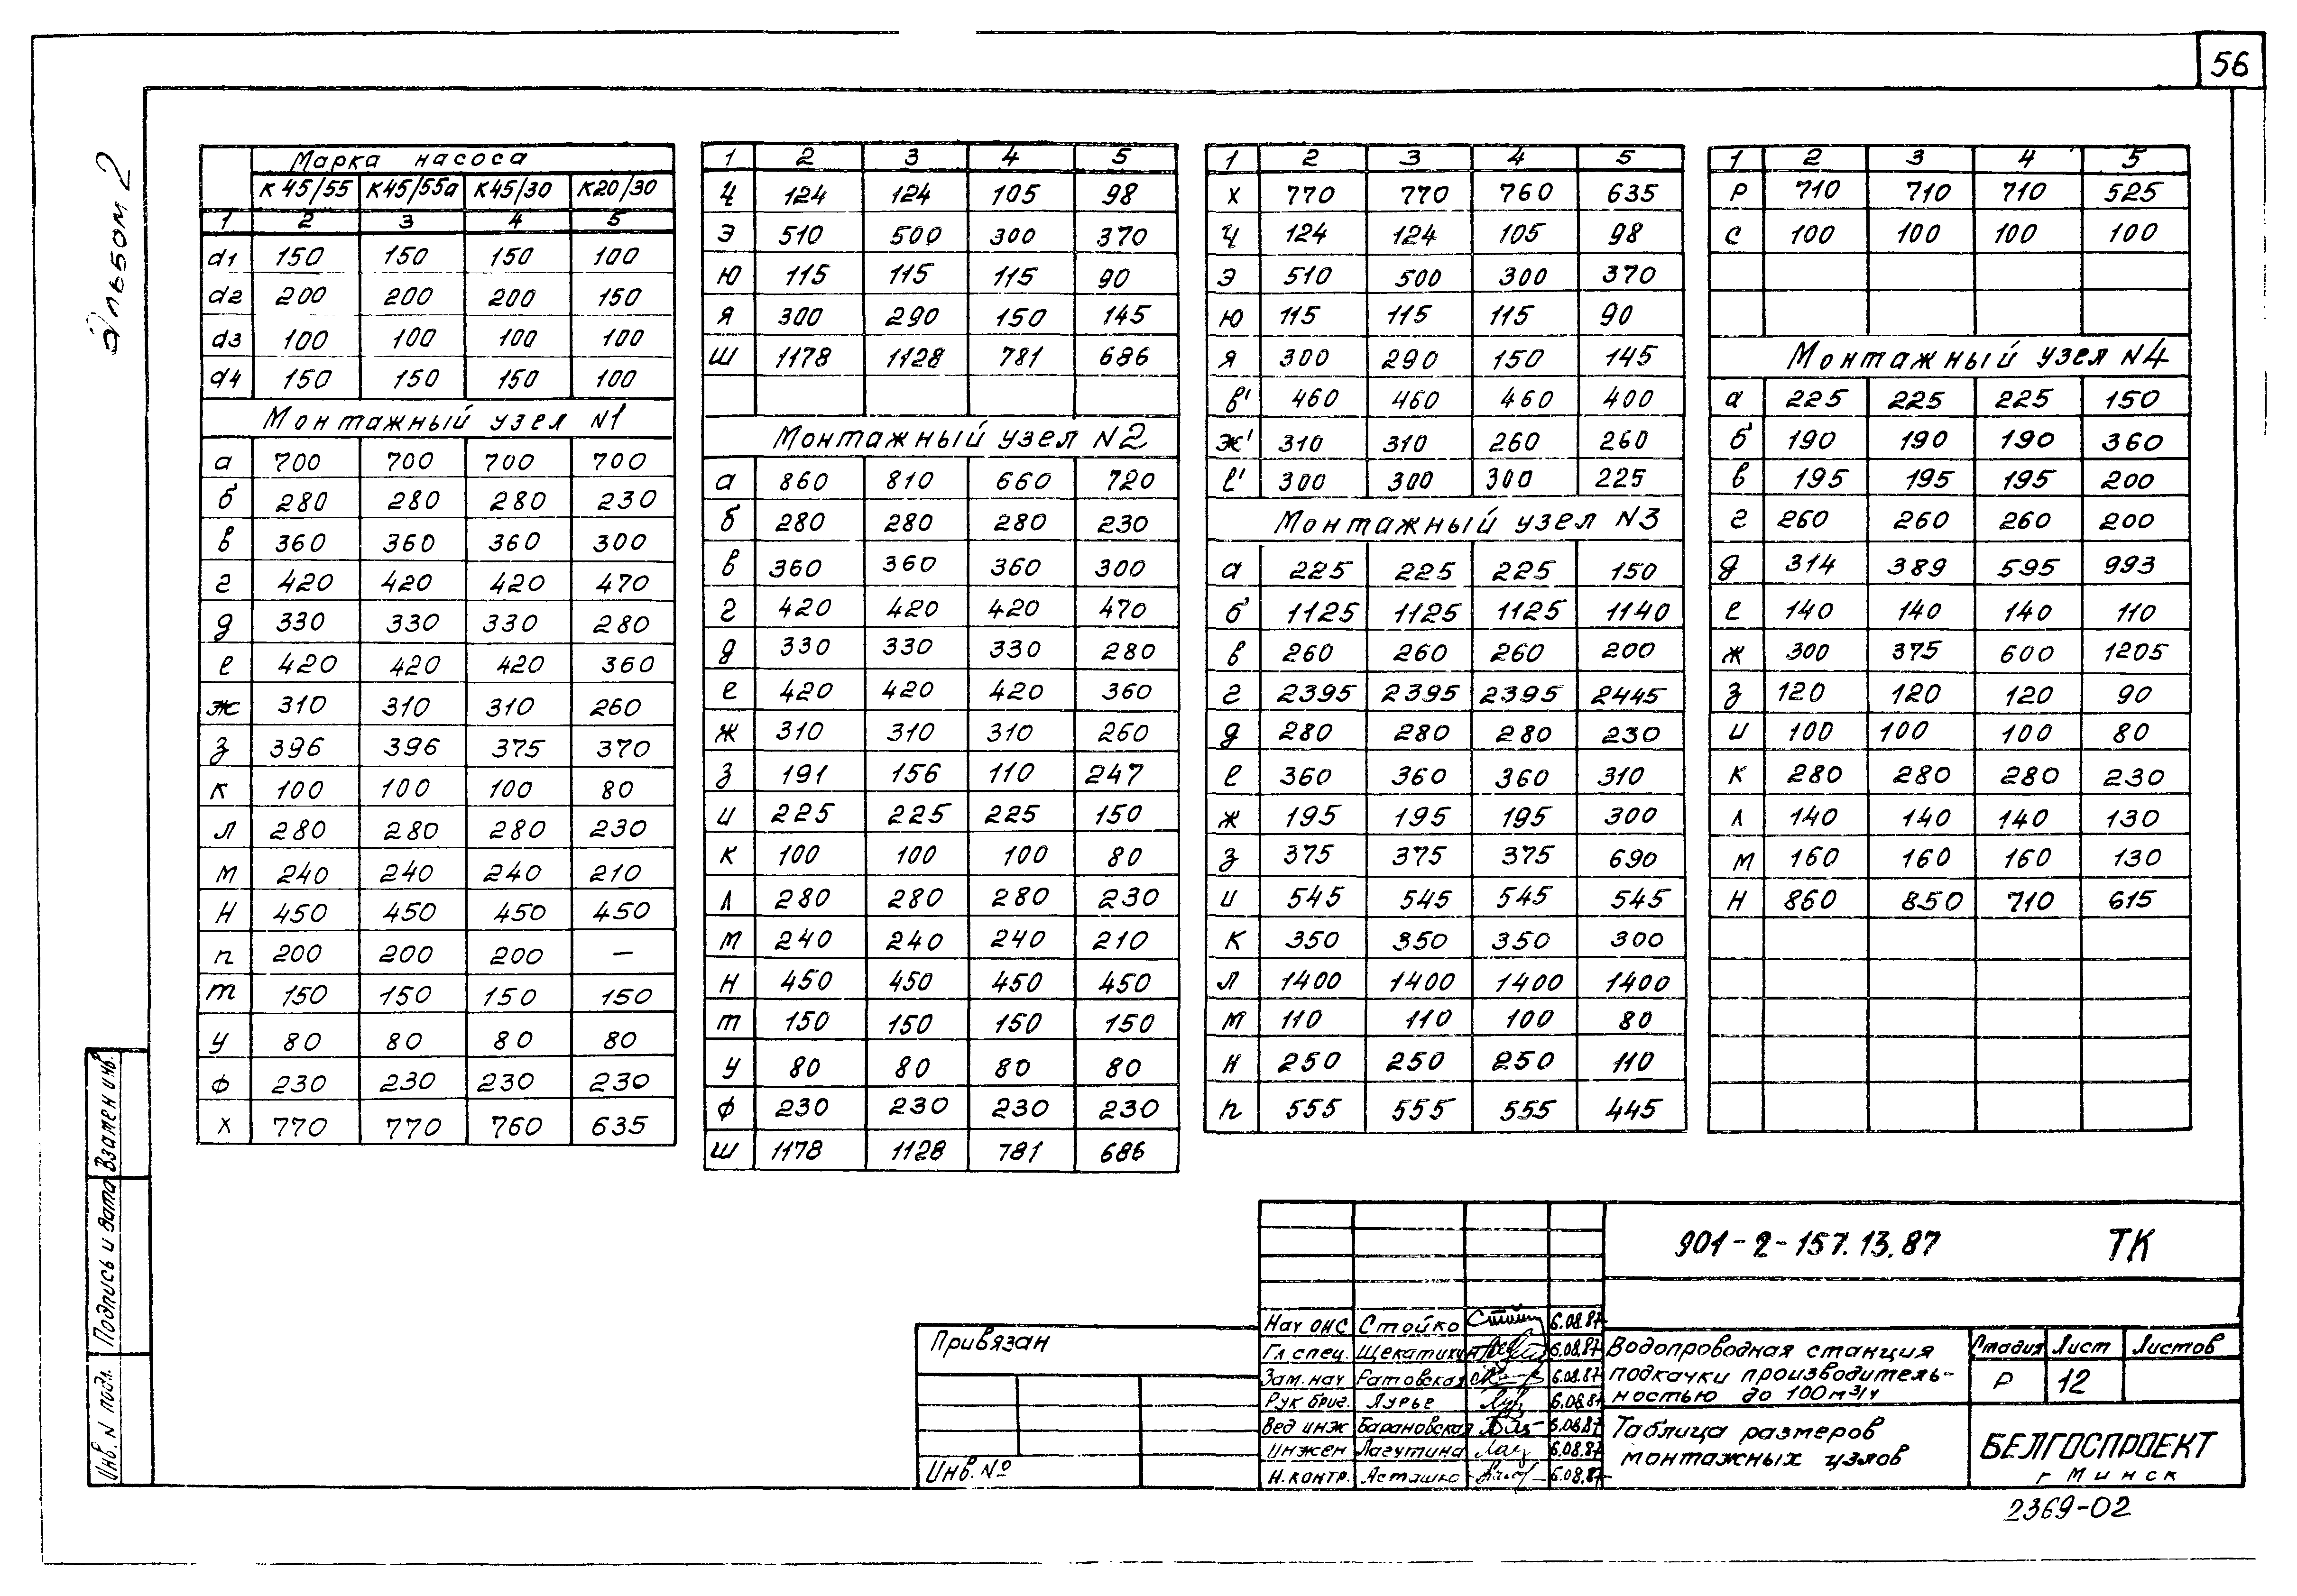 56
Альбом 2
Марка насоса
К 45/55 К45/55а К45/30 К20/30
1 2 3 4 5
d1 150 150 150 100
d2 200 200 200 150
d3 100 100 100 100
d4 150 150 150 100
Монтажный узел N1
а 700 700 700 700
б 280 280 280 230
в 360 360 360 300
г 420 420 420 470
д 330 330 330 280
е 420 420 420 360
ж 310 310 310 260
з 396 396 375 370
к 100 100 100 80
л 280 280 280 230
м 240 240 240 210
н 450 450 450 450
п 200 200 200 —
т 150 150 150 150
у 80 80 80 80
ф 230 230 230 230
х 770 770 760 635
1 2 3 4 5
Ц 124 124 105 98
Э 510 500 300 370
Ю 115 115 115 90
Я 300 290 150 145
Ш 1178 1128 781 686
Монтажный узел N2
а 860 810 660 720
б 280 280 280 230
в 360 360 360 300
г 420 420 420 470
д 330 330 330 280
е 420 420 420 360
ж 310 310 310 260
з 191 156 110 247
и 225 225 225 150
к 100 100 100 80
л 280 280 280 230
м 240 240 240 210
н 450 450 450 450
т 150 150 150 150
у 80 80 80 80
ф 230 230 230 230
ш 1178 1128 781 686
1 2 3 4 5
х 770 770 760 635
ц 124 124 105 98
э 510 500 300 370
ю 115 115 115 90
я 300 290 150 145
в' 460 460 460 400
ж' 310 310 260 260
е' 300 300 300 225
Монтажный узел N3
а 225 225 225 150
б 1125 1125 1125 1140
в 260 260 260 200
г 2395 2395 2395 2445
д 280 280 280 230
е 360 360 360 310
ж 195 195 195 300
з 375 375 375 690
и 545 545 545 545
к 350 350 350 300
л 1400 1400 1400 1400
м 110 110 100 80
н 250 250 250 110
п 555 555 555 445
1 2 3 4 5
р 710 710 710 525
с 100 100 100 100
Монтажный узел N4
а 225 225 225 150
б 190 190 190 360
в 195 195 195 200
г 260 260 260 200
д 314 389 595 993
е 140 140 140 110
ж 300 375 600 1205
з 120 120 120 90
и 100 100 100 80
к 280 280 280 230
л 140 140 140 130
м 160 160 160 130
н 860 850 710 615
Взамен инв.
Подпись и дата
Инв. N подл.
Привязан
Инв. №
Нач ОНС Стойко 6.08.87
Гл спец. Щекатихин 6.08.87
Зам. нач Ратовская 6.08.87
Рук бриг. Лурье 6.08.87
Вед инж Барановская 6.08.87
Инжен Лагутина 6.08.87
Н. контр. Асташко 6.08.87
901-2-157.13.87 ТК
Водопроводная станция
подкачки производитель-
ностью до 100 м³/ч
Стадия Лист Листов
Р 12
Таблица размеров
монтажных узлов
БЕЛГОСПРОЕКТ
г Минск
2369-02